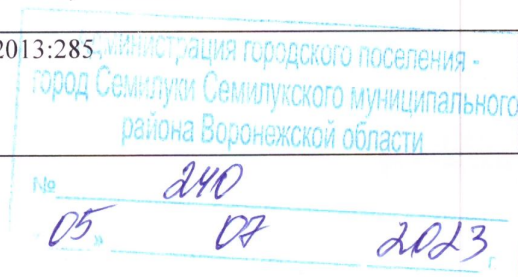 2013:285
Администрация городского поселения -
город Семилуки Семилукского муниципального
района Воронежской области
№ 240
05 » 07 2023 г